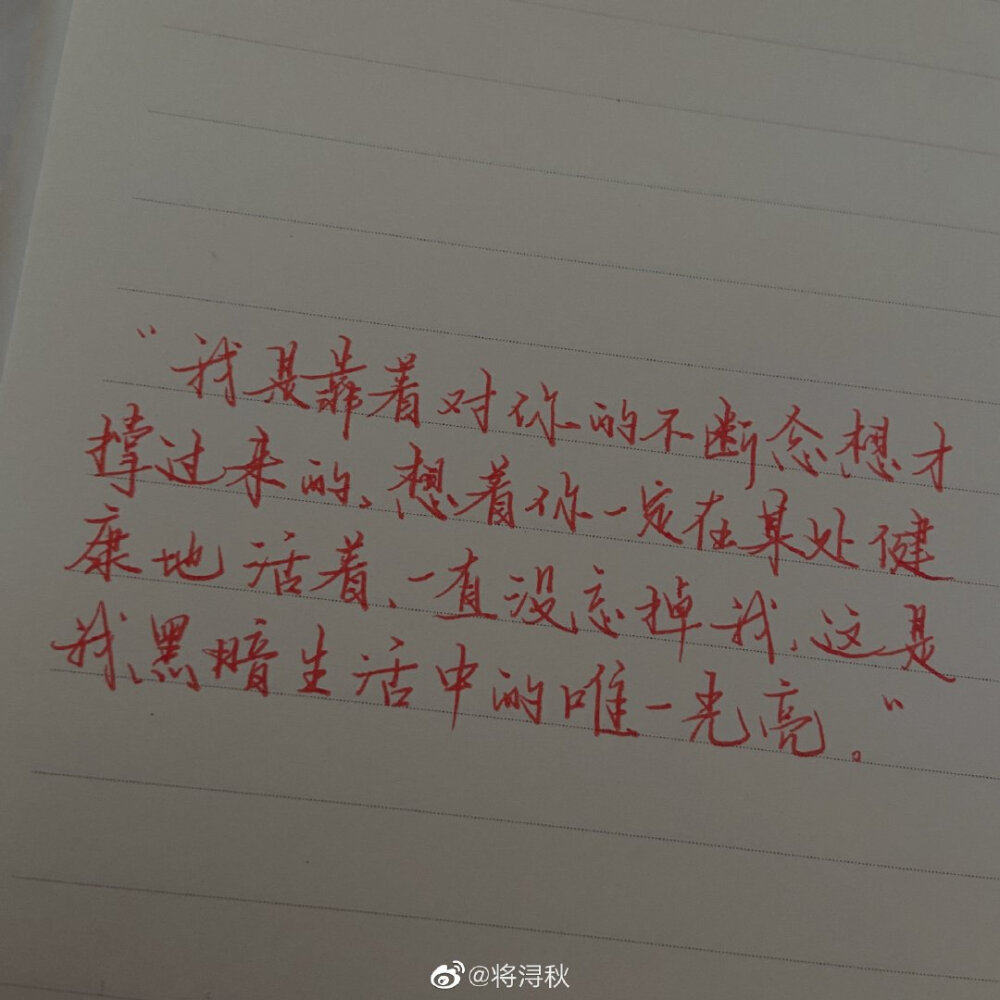 “我是靠着对你的不断念想才
撑过来的、想着你一定在某处健
康地活着、一直没忘掉我、这是
我黑暗生活中的唯一光亮。”
@将浔秋